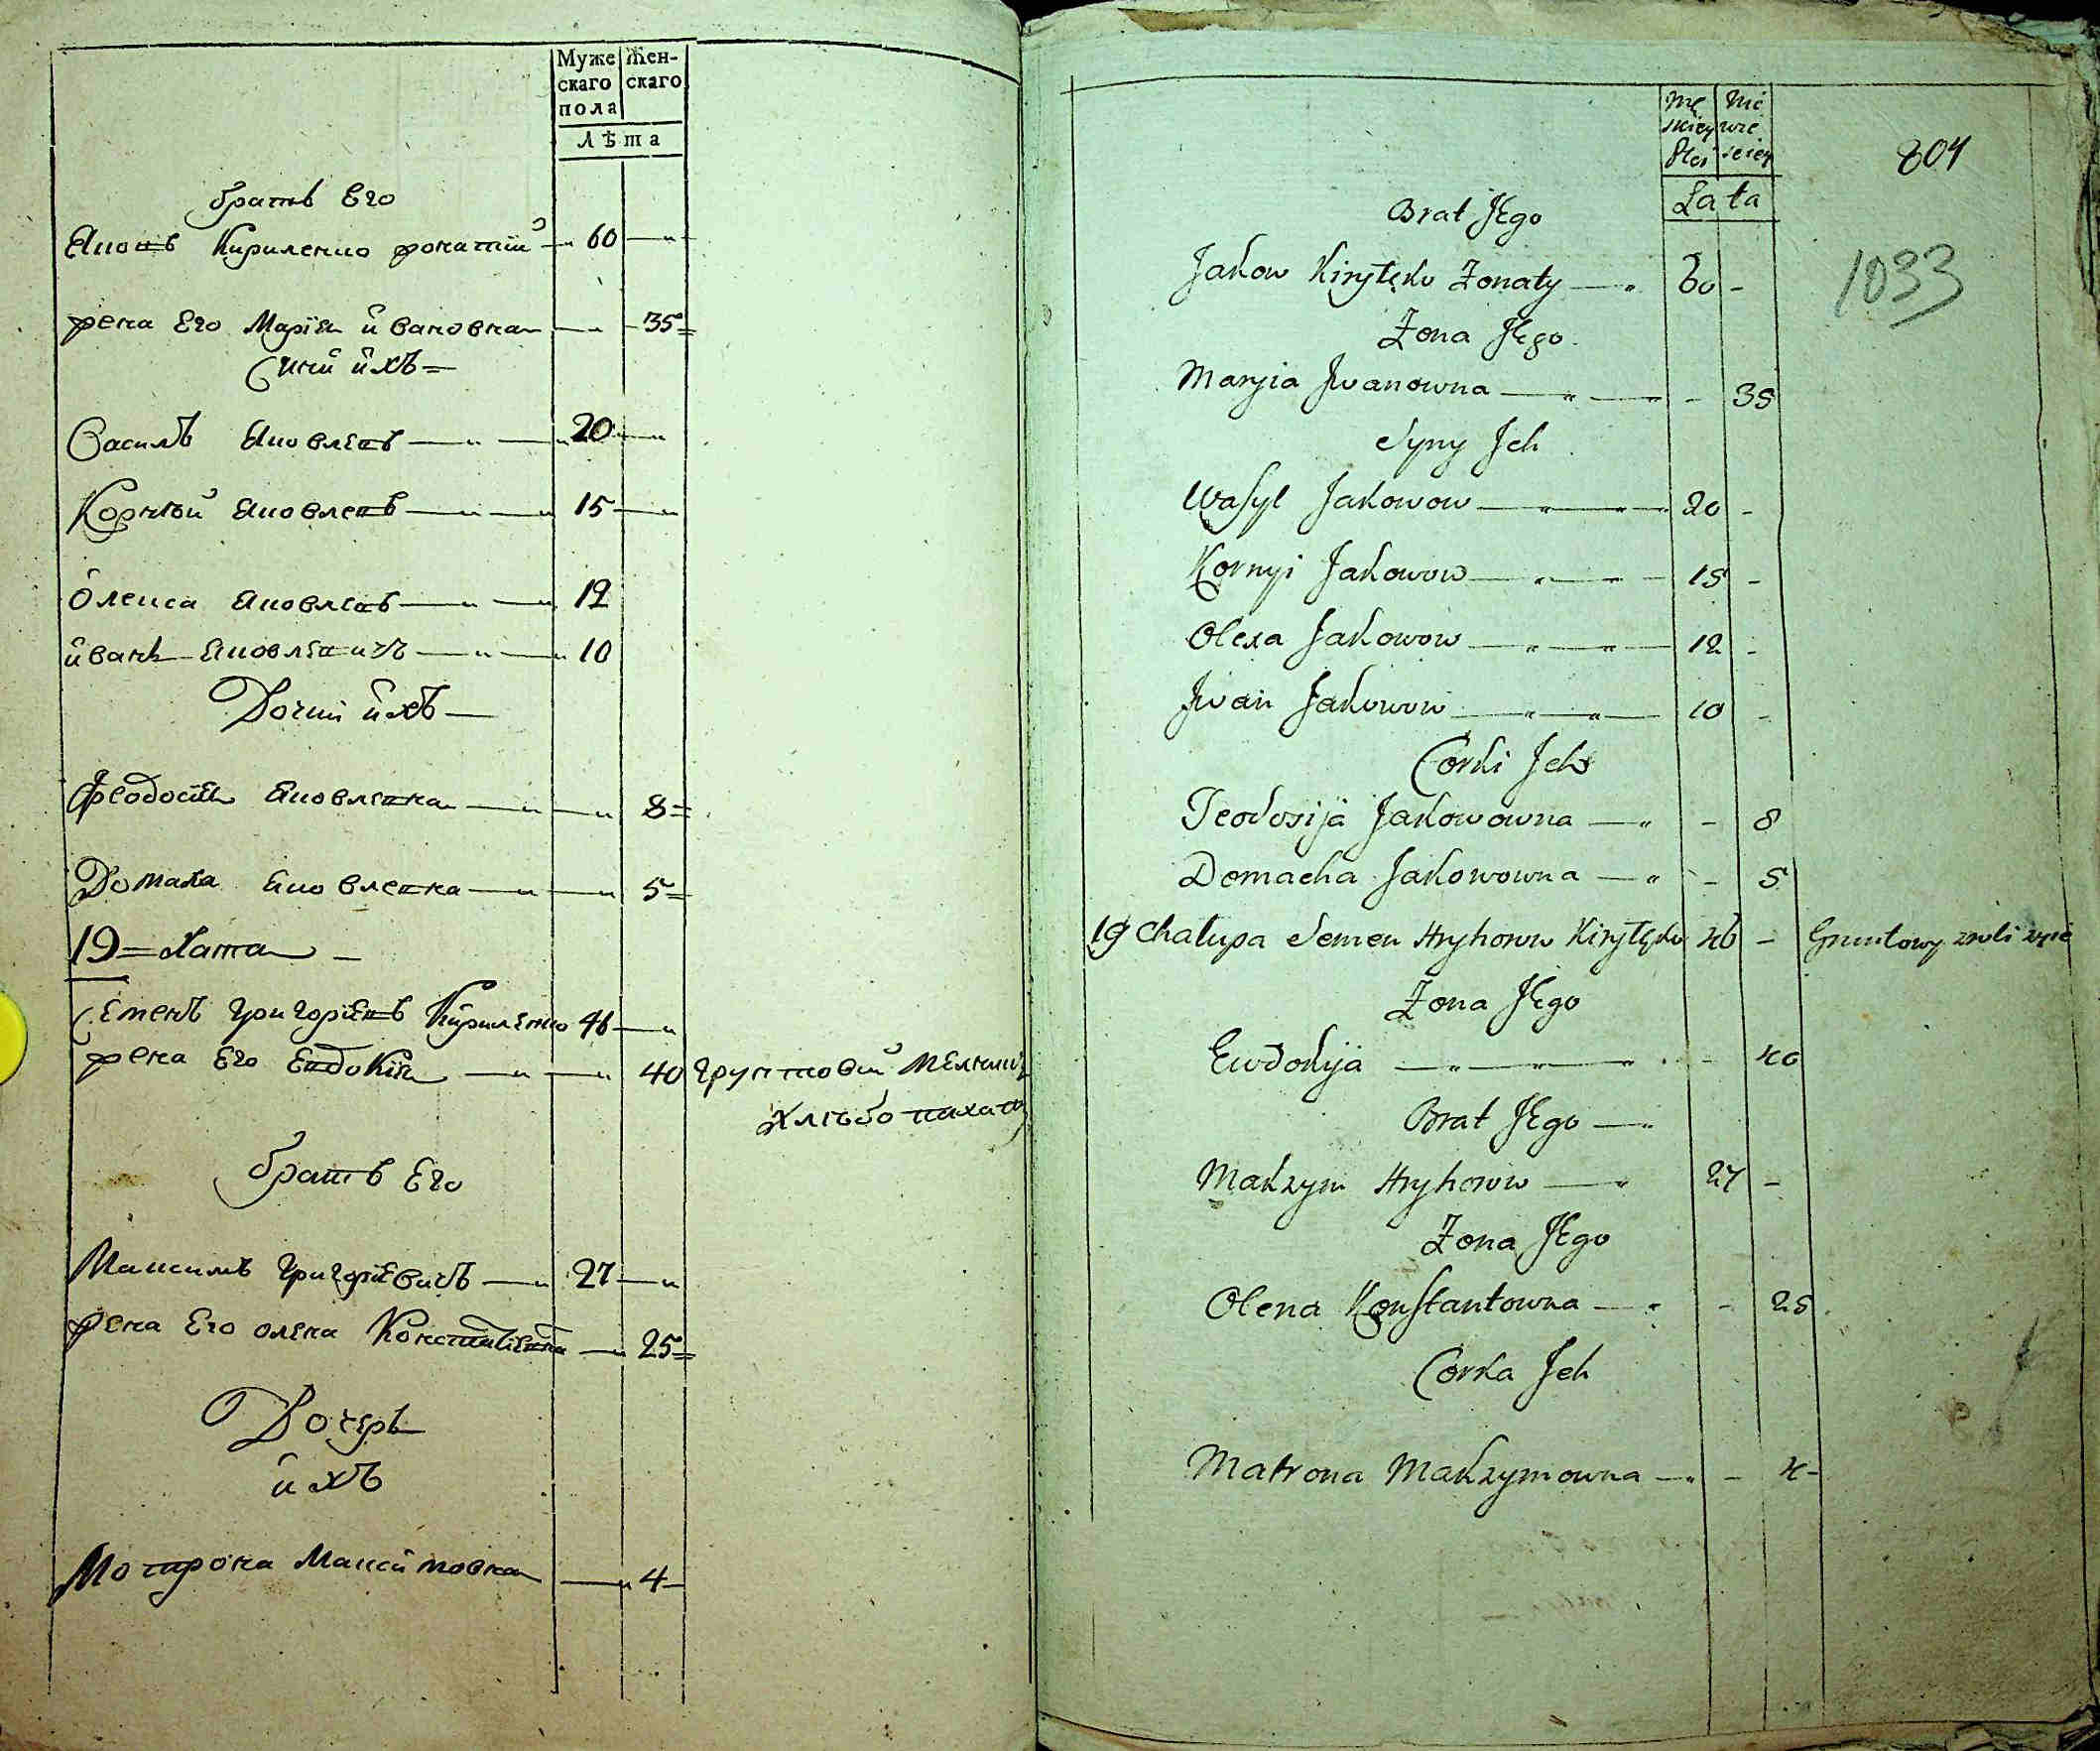 Муже Жен-
скаго скаго
пола
Лѣта
братъ Его
Яковъ Кириленко жонатий — 60 —
жена Его Марія ивановна — 35=
Сини ихъ=
Василъ Яковлевъ — 20 —
Корнѣй Яковлевъ — 15 —
Олекса Яковлевъ — 12
иванъ Яковлевичъ — 10
Дочки ихъ —
Феодосія Яковлевна — 8=
Домаха Яковлевна — 5=
19= хата —
Семенъ григоріевъ Кириленко 46 —
жена Его Евдокія — 40 грунтовий
хлѣбопахат
братъ Его
Максимъ григоріевичъ — 27 —
жена Его олена — 25=
Дочерь
ихъ
Мотрона Максимовна — 4 —
Mę Nie
skiey wie
Płci sciey
Lata
804
1033
Brat Jego
Jakow Kiryłęko Żonaty — 60 -
Żona Jego
Maryia Jwanowna — - 35
Syny Jch
Wasyl Jakowow — 20 -
Kornyi Jakowow — 15 -
Olexa Jakowow — 12 -
Jwan Jakowow — 10 -
Corki Jch
Teodosija Jakowowna — - 8
Domacha Jakowowna — - 5
19 Chałupa Semen Hryhorow Kiryłęko 46 - Gruntowy z roli żyie
Żona Jego
Ewdokija — - 40
Brat Jego —
Makzym Hryhorow — 27 -
Żona Jego
Olena Konstantowna — - 25
Corka Jch
Matrona Makzymowna — - 4 -